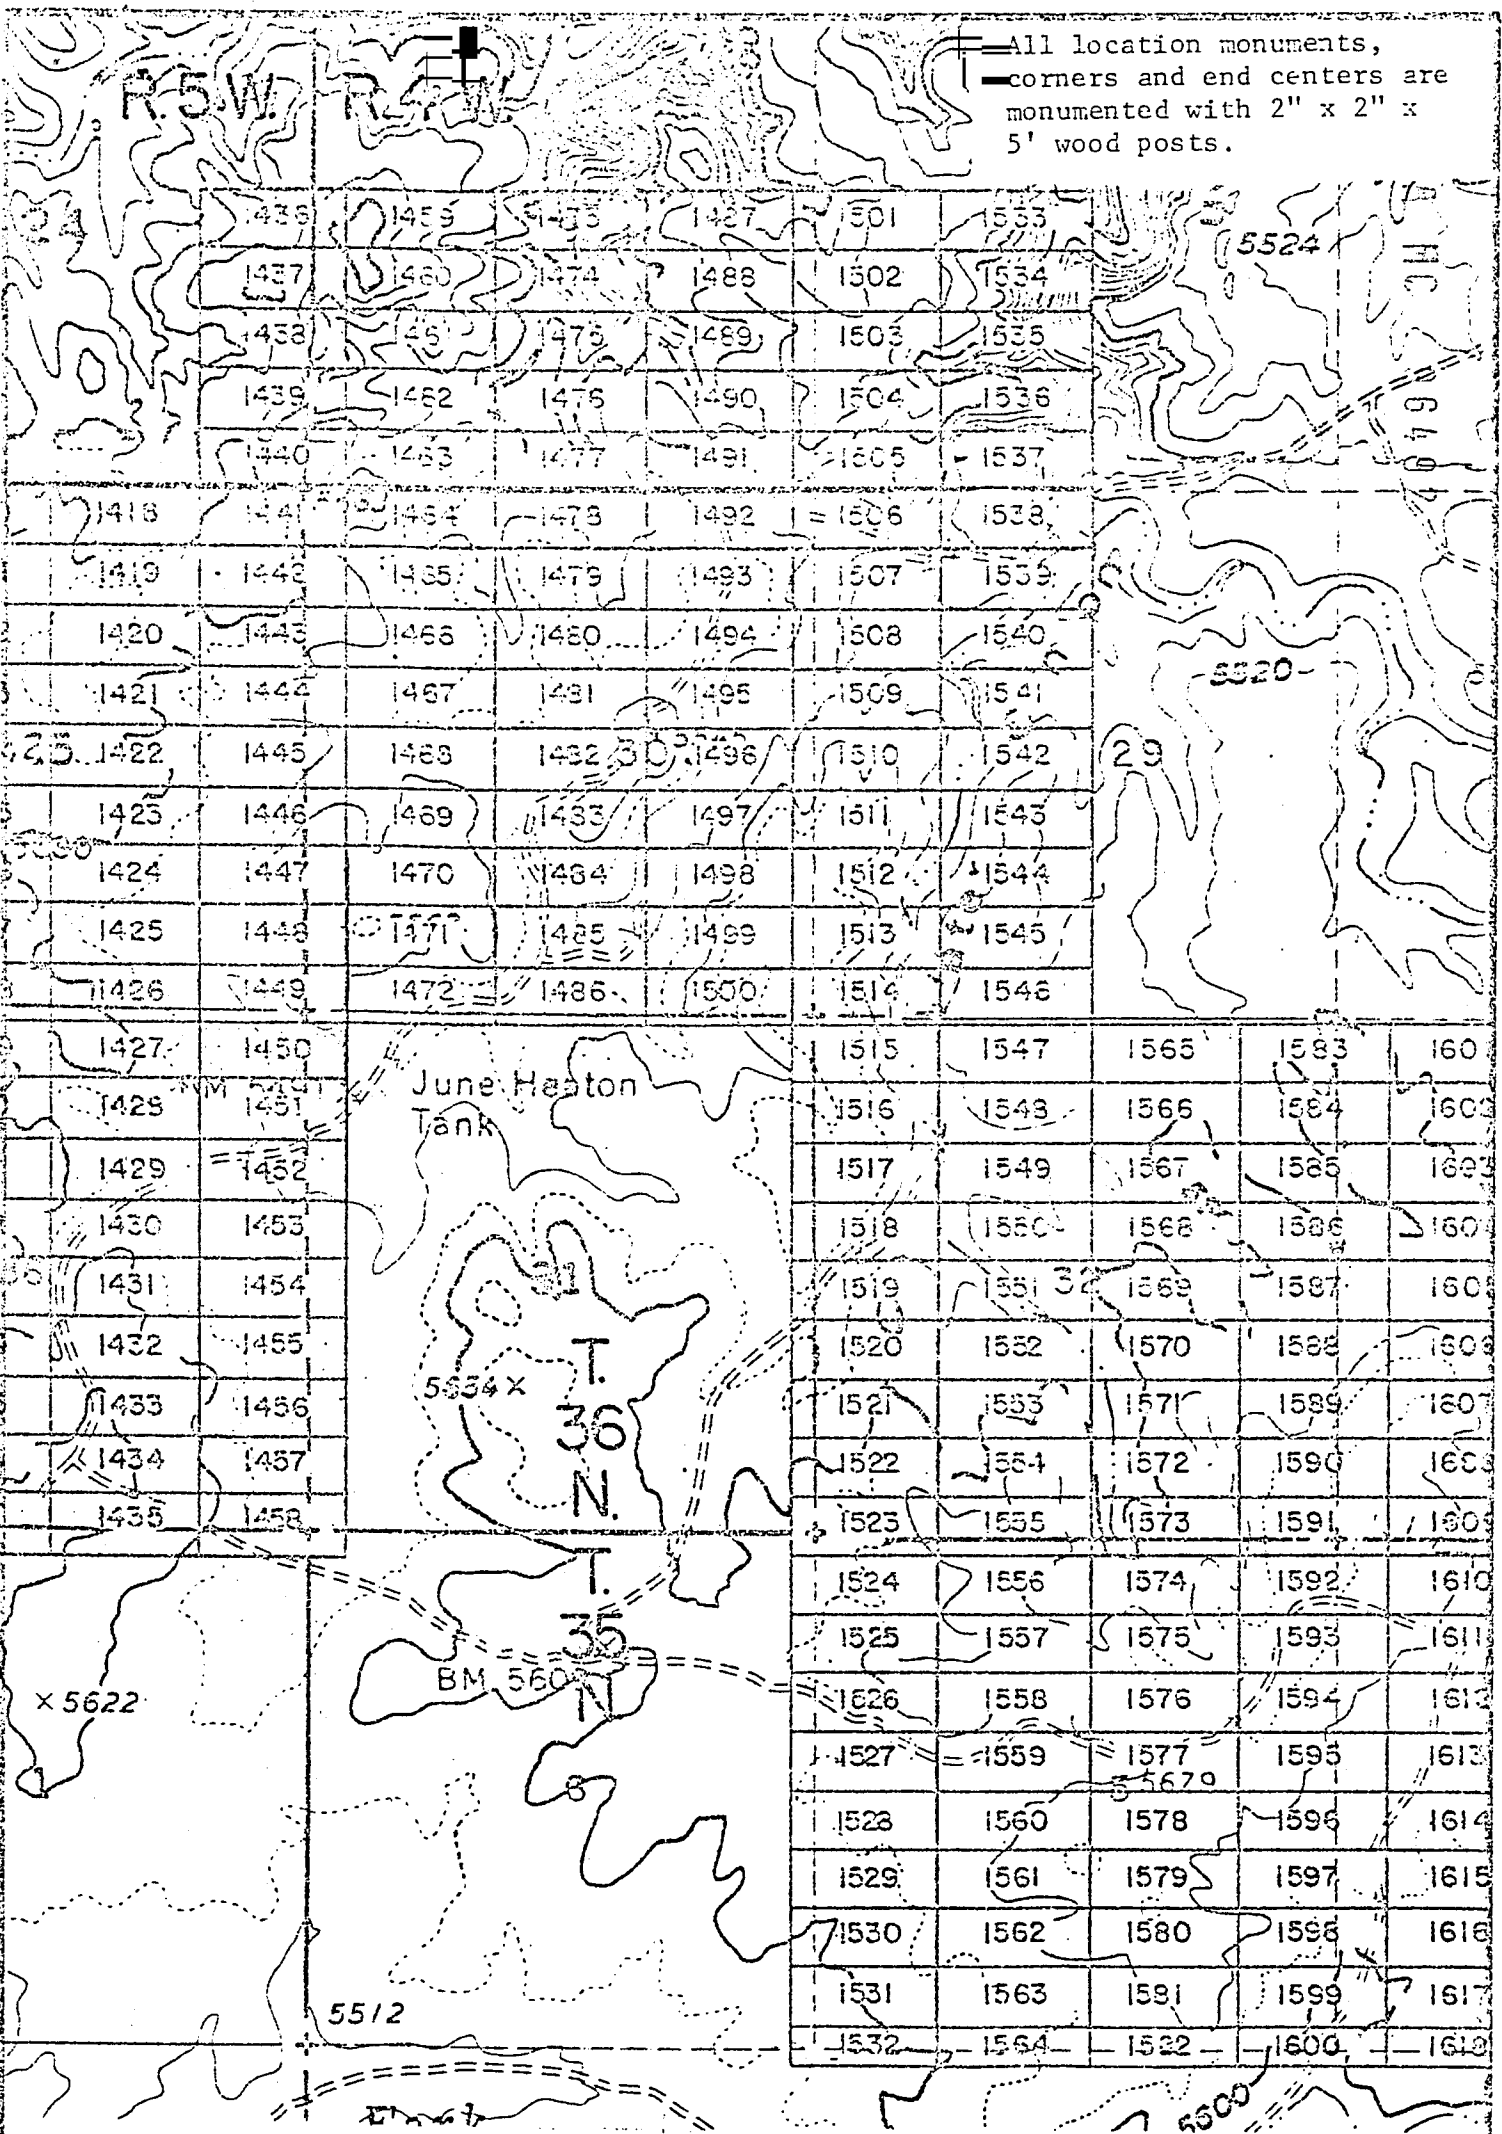 All location monuments,
corners and end centers are
monumented with 2" x 2" x
5' wood posts.
R.5W. R.4W.
24
1436 1459 1473 1487 1501 1533
5524
1437 1460 1474 1488 1502 1534
1438 1461 1475 1489 1503 1535
1439 1462 1476 1490 1504 1536
1440 1463 1477 1491 1505 1537
1418 1441 1464 1478 1492 1506 1538
1419 1442 1465 1479 1493 1507 1539
1420 1443 1466 1480 1494 1508 1540
1421 1444 1467 1481 1495 1509 1541
5520
25 1422 1445 1468 1482 30 1496 1510 1542 29
1423 1446 1469 1483 1497 1511 1543
1424 1447 1470 1484 1498 1512 1544
1425 1448 1471 1485 1499 1513 1545
1426 1449 1472 1486 1500 1514 1546
1427 1450 1515 1547 1565 1583 160
June Heaton
Tank
1428 1451 1516 1548 1566 1584 1602
1429 1452 1517 1549 1567 1585 1603
1430 1453 1518 1550 1568 1586 160
1431 1454 31 1519 1551 32 1569 1587 160
1432 1455 1520 1552 1570 1588 1606
T.
36
N.
5634
1433 1456 1521 1553 1571 1589 1607
1434 1457 1522 1554 1572 1590 1608
1435 1458 1523 1555 1573 1591 1609
T.
35
N
1524 1556 1574 1592 1610
1525 1557 1575 1593 1611
BM 560
5622
1526 1558 1576 1594 1612
1527 1559 1577 1595 1613
5679
1 6 5
1528 1560 1578 1596 1614
1529 1561 1579 1597 1615
1530 1562 1580 1598 1616
1531 1563 1581 1599 1617
5512
1532 1564 1582 1600 1618
5500